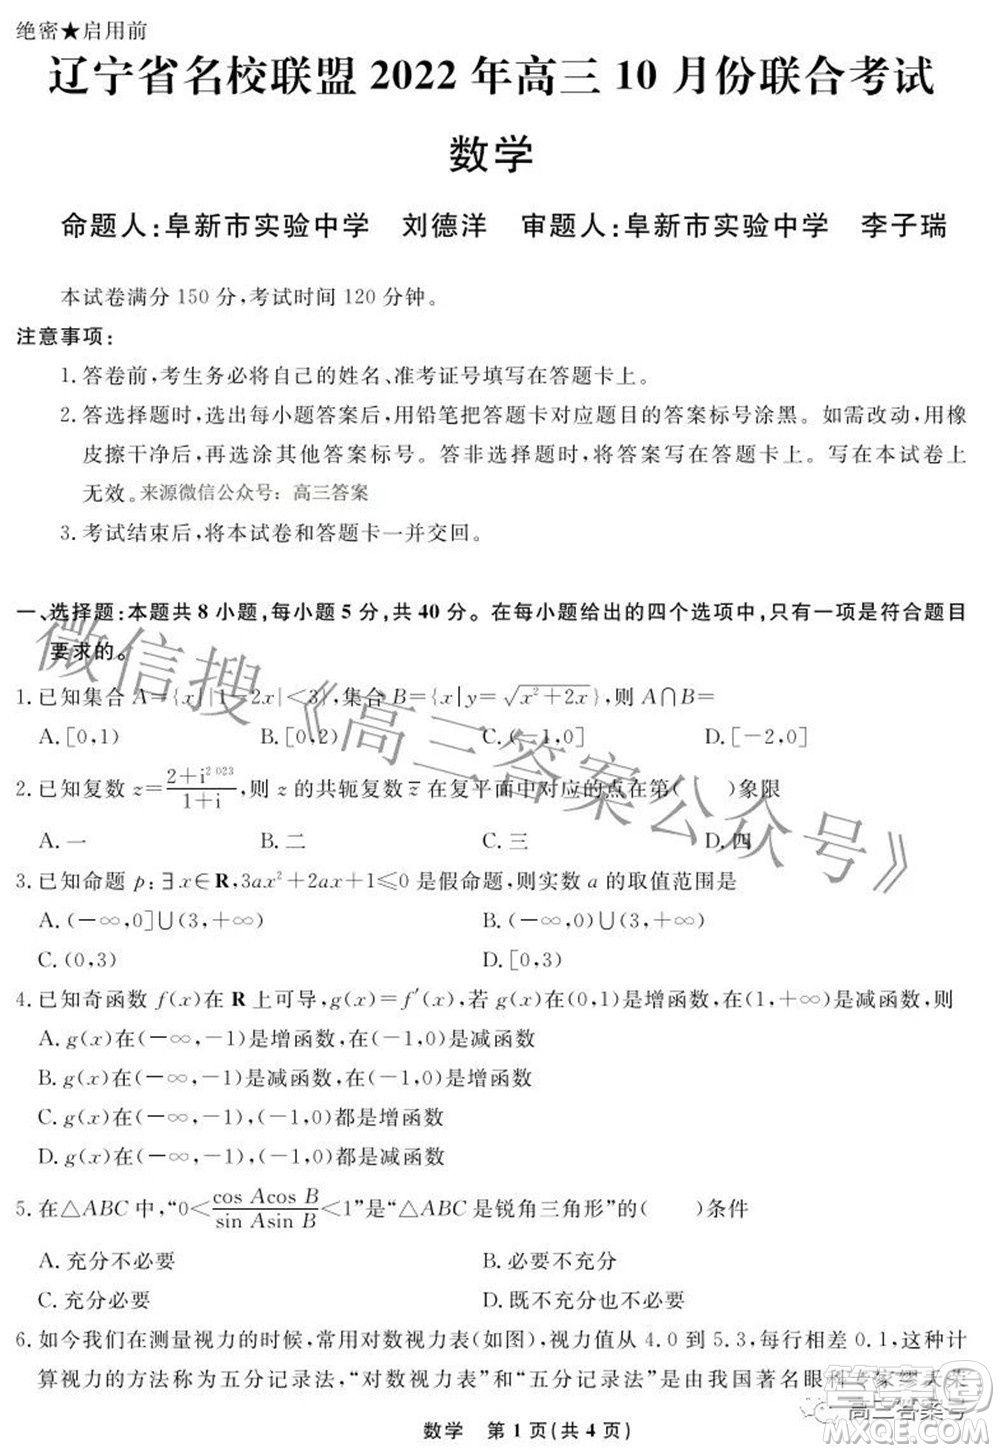 绝密★启用前
辽宁省名校联盟 2022 年高三 10 月份联合考试
数学
命题人:阜新市实验中学 刘德洋 审题人:阜新市实验中学 李子瑞
本试卷满分 150 分,考试时间 120 分钟。
注意事项:
1. 答卷前,考生务必将自己的姓名、准考证号填写在答题卡上。
2. 答选择题时,选出每小题答案后,用铅笔把答题卡对应题目的答案标号涂黑。如需改动,用橡
皮擦干净后,再选涂其他答案标号。答非选择题时,将答案写在答题卡上。写在本试卷上
无效。 来源微信公众号:高三答案
3. 考试结束后,将本试卷和答题卡一并交回。
一、选择题:本题共 8 小题,每小题 5 分,共 40 分。在每小题给出的四个选项中,只有一项是符合题目
要求的。
1. 已知集合 A={x||1-2x|<3},集合 B={x|y=√(x²+2x)},则 A∩B=
A. [0,1) B. [0,2) C. (-1,0] D. [-2,0]
2. 已知复数 z=(2+i^2 023)/(1+i),则 z 的共轭复数 z̅ 在复平面中对应的点在第( )象限
A. 一 B. 二 C. 三 D. 四
3. 已知命题 p:∃x∈R,3ax²+2ax+1≤0 是假命题,则实数 a 的取值范围是
A. (-∞,0]∪(3,+∞) B. (-∞,0)∪(3,+∞)
C. (0,3) D. [0,3)
4. 已知奇函数 f(x)在 R 上可导,g(x)=f′(x),若 g(x)在(0,1)是增函数,在(1,+∞)是减函数,则
A. g(x)在(-∞,-1)是增函数,在(-1,0)是减函数
B. g(x)在(-∞,-1)是减函数,在(-1,0)是增函数
C. g(x)在(-∞,-1),(-1,0)都是增函数
D. g(x)在(-∞,-1),(-1,0)都是减函数
5. 在△ABC 中,“0<(cos Acos B)/(sin Asin B)<1”是“△ABC 是锐角三角形”的( )条件
A. 充分不必要 B. 必要不充分
C. 充分必要 D. 既不充分也不必要
6. 如今我们在测量视力的时候,常用对数视力表(如图),视力值从 4.0 到 5.3,每行相差 0.1,这种计
算视力的方法称为五分记录法,“对数视力表”和“五分记录法”是由我国著名眼科专家缪天荣
数学 第 1 页(共 4 页)
微信搜《高三答案公众号》
高三答案号